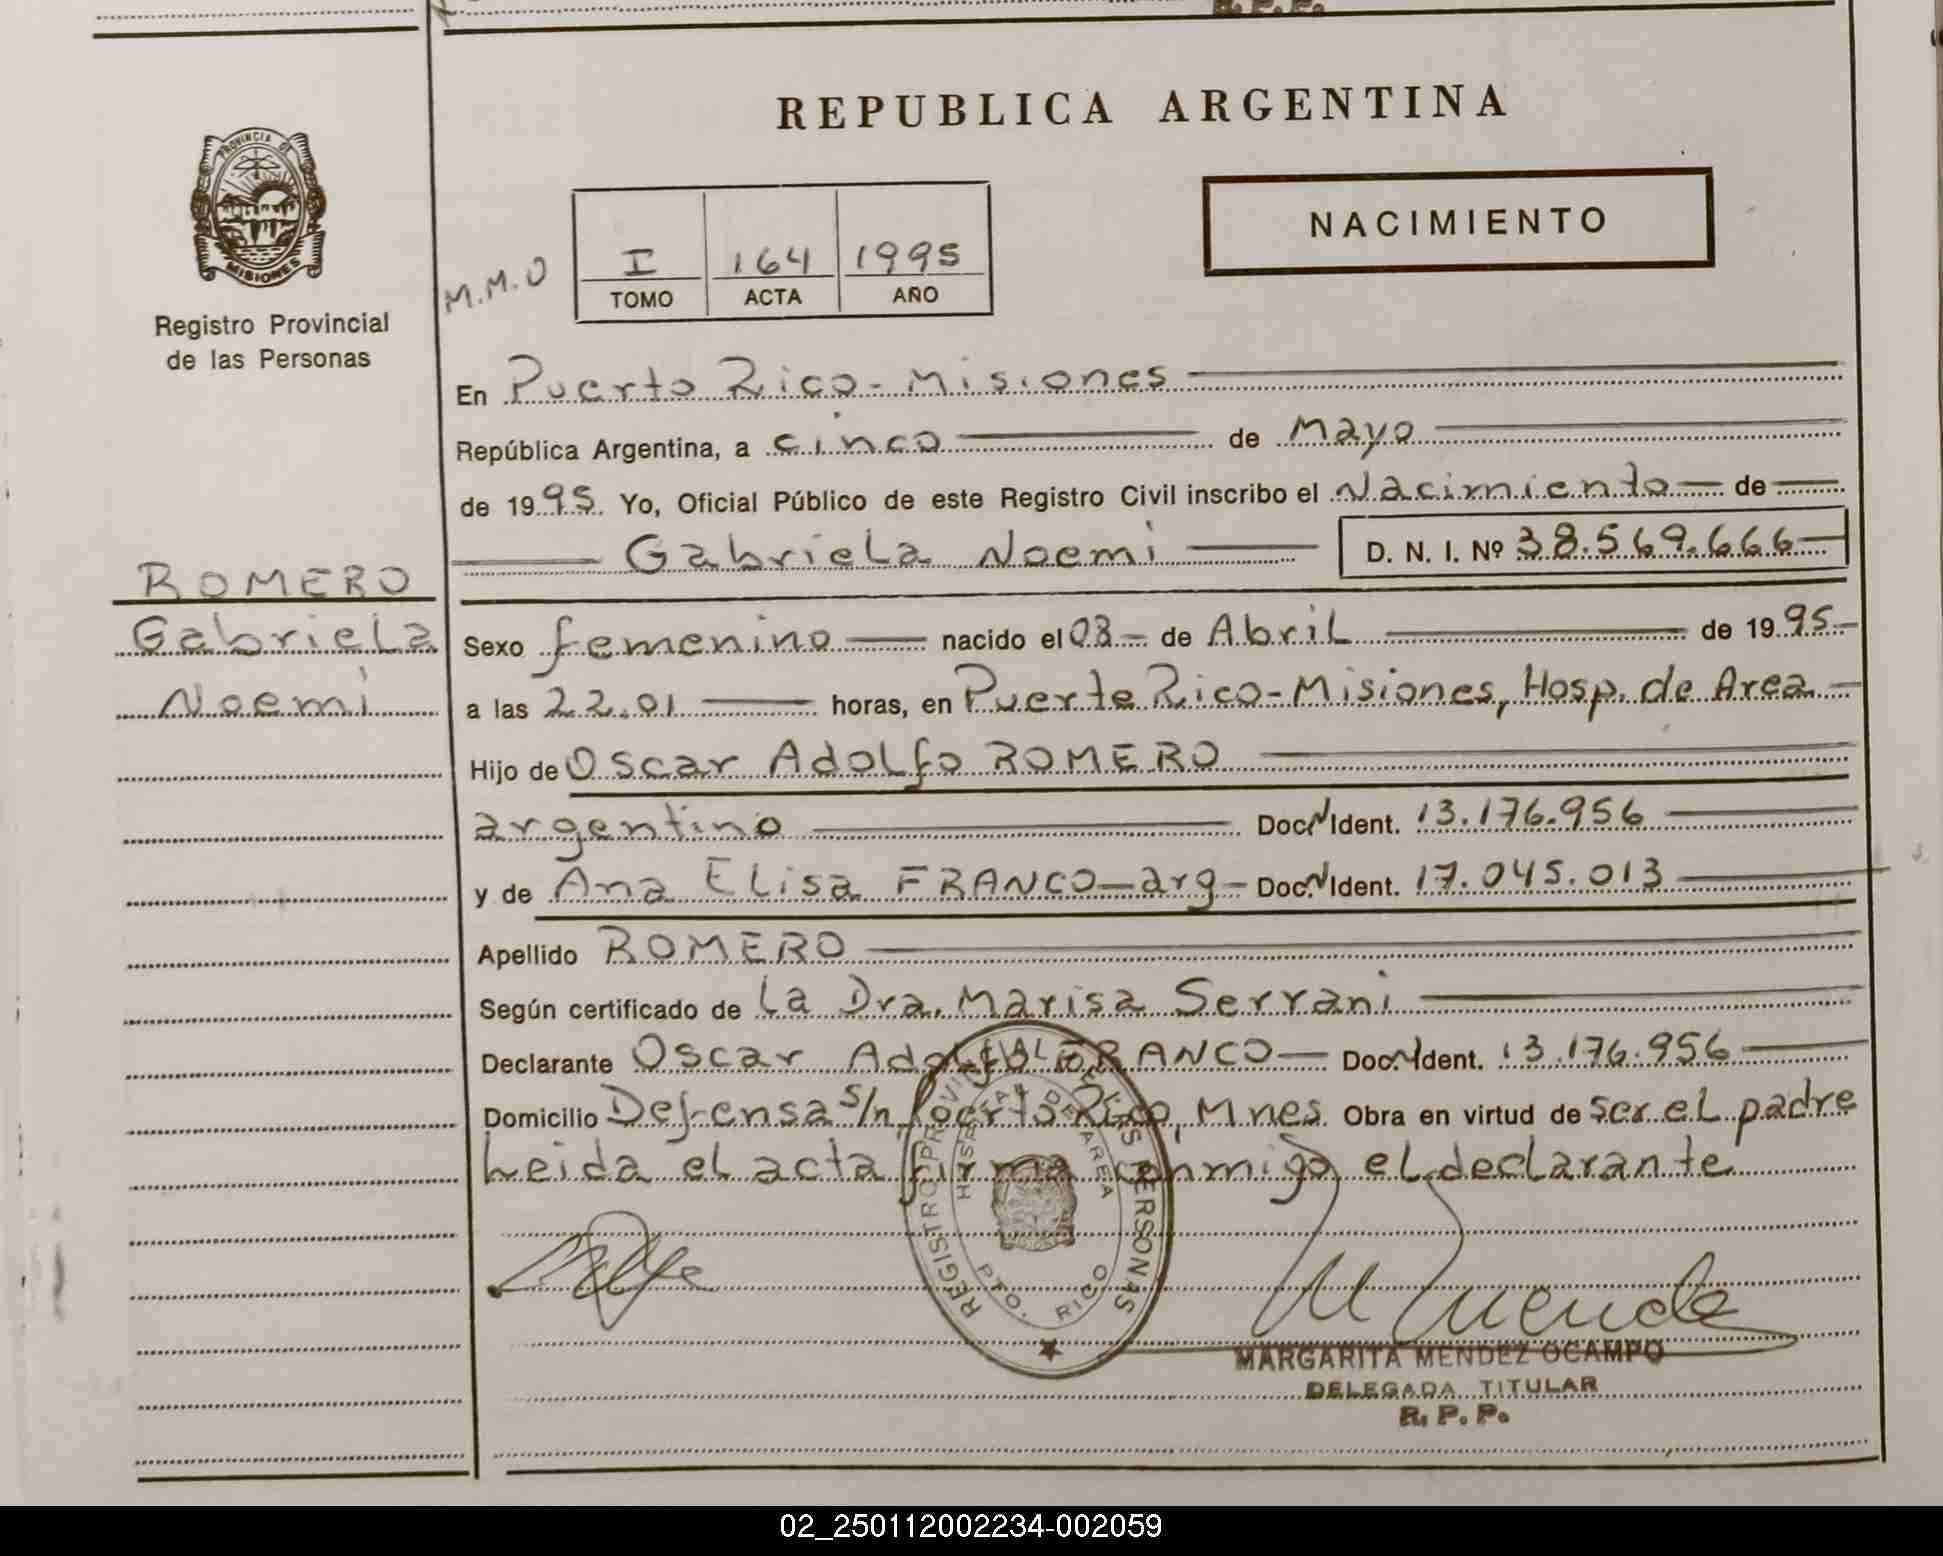 R. P. P.
REPUBLICA ARGENTINA
PROVINCIA DE
MISIONES
Registro Provincial
de las Personas
NACIMIENTO
M.M.O
I 164 1995
TOMO ACTA AÑO
En Puerto Rico - Misiones
República Argentina, a cinco de Mayo
de 1995. Yo, Oficial Público de este Registro Civil inscribo el Nacimiento de
Gabriela Noemi D. N. I. Nº 38.569.666
ROMERO
Gabriela
Noemi
Sexo femenino nacido el 03 de Abril de 1995
a las 22.01 horas, en Puerto Rico - Misiones, Hosp. de Area
Hijo de Oscar Adolfo ROMERO
argentino Doc. Ident. 13.176.956
y de Ana Elisa FRANCO - arg - Doc. Ident. 17.045.013
Apellido ROMERO
Según certificado de la Dra. Marisa Serrani
Declarante Oscar Adolfo FRANCO Doc. Ident. 13.176.956
Domicilio Defensa s/n, Puerto Rico, Mnes. Obra en virtud de ser el padre
Leida el acta firma conmigo el declarante
REGISTRO PROVINCIAL DE LAS PERSONAS
HOSPITAL DE AREA
PTO. RICO
MARGARITA MENDEZ OCAMPO
DELEGADA TITULAR
R. P. P.
02_250112002234-002059